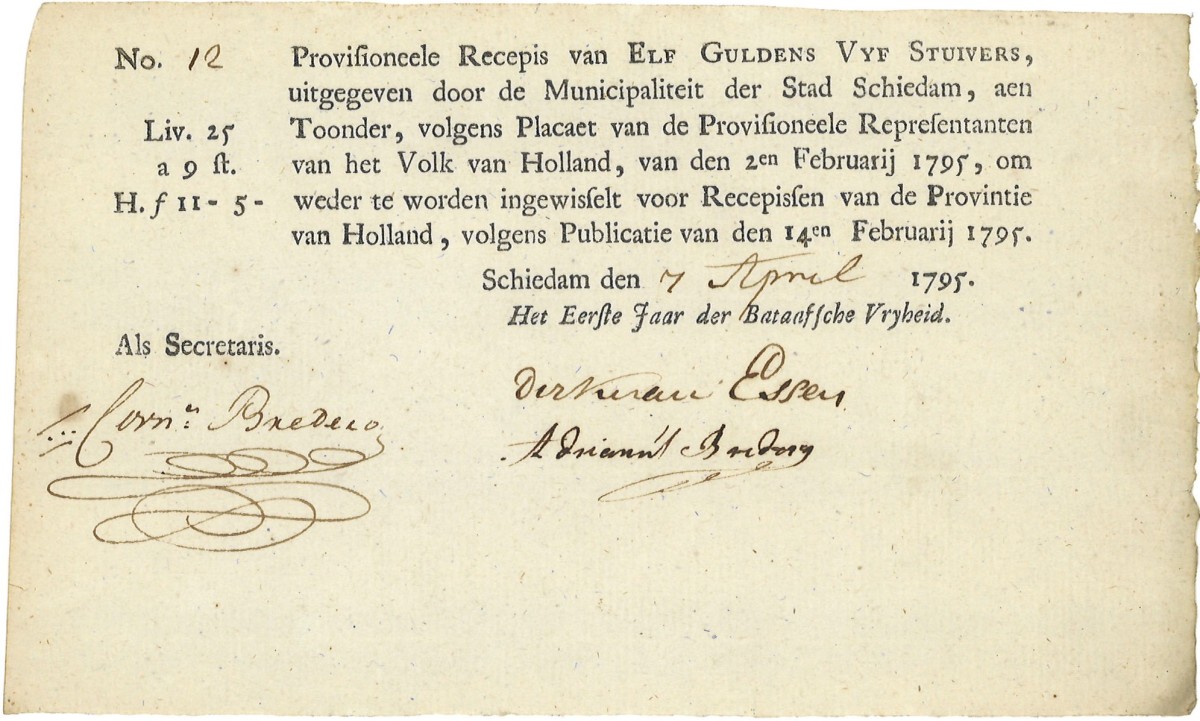 No. 12
Provisioneele Recepis van ELF GULDENS VYF STUIVERS,
uitgegeven door de Municipaliteit der Stad Schiedam, aen
Liv. 25
Toonder, volgens Placaet van de Provisioneele Repreſentanten
a 9 ſt.
van het Volk van Holland, van den 2en Februarij 1795, om
H. f 11 - 5 -
weder te worden ingewiſſelt voor Recepiſſen van de Provintie
van Holland, volgens Publicatie van den 14en Februarij 1795.
Schiedam den 7 April 1795.
Het Eerſte Jaar der Bataafſche Vryheid.
Als Secretaris.
Dirk van Essen
Corn.s Bredero
Adrianus